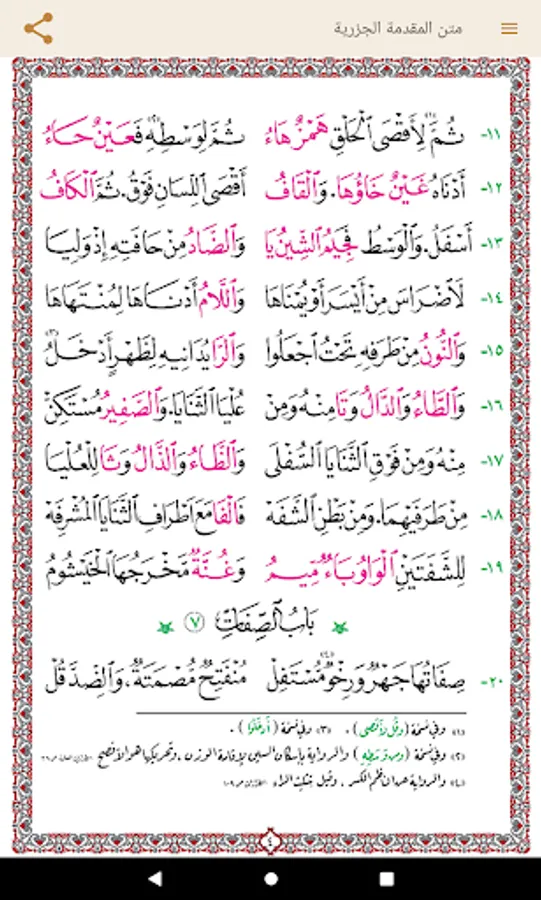 متن المقدمة الجزرية
١١- ثُمَّ لِأَقْصَى الْحَلْقِ هَمْزٌ هَاءُ ثُمَّ لِوَسْطِهِ فَعَيْنٌ حَاءُ
١٢- أَدْنَاهُ غَيْنٌ خَاؤُهَا. وَالْقَافُ أَقْصَى اللِّسَانِ فَوْقُ. ثُمَّ الْكَافُ
١٣- أَسْفَلُ. وَالْوَسْطُ فَجِيمُ الشِّينُ يَا وَالضَّادُ مِنْ حَافَتِهِ إِذْ وَلِيَا
١٤- لَاضْرَاسَ مِنْ أَيْسَرَ أَوْ يُمْنَاهَا وَاللَّامُ أَدْنَاهَا لِمُنْتَهَاهَا
١٥- وَالنُّونُ مِنْ طَرَفِهِ تَحْتُ اجْعَلُوا وَالرَّا يُدَانِيهِ لِظَهْرٍ أَدْخَلُ
١٦- وَالطَّاءُ وَالدَّالُ وَتَا مِنْهُ وَمِنْ عُلْيَا الثَّنَايَا. وَالصَّفِيرُ مُسْتَكِنْ
١٧- مِنْهُ وَمِنْ فَوْقِ الثَّنَايَا السُّفْلَى وَالظَّاءُ وَالذَّالُ وَثَا لِلْعُلْيَا
١٨- مِنْ طَرَفَيْهِمَا. وَمِنْ بَطْنِ الشَّفَهْ فَالْفَا مَعَ اطْرَافِ الثَّنَايَا الْمُشْرِفَهْ
١٩- لِلشَّفَتَيْنِ الْوَاوُ بَاءٌ مِيمُ وَغُنَّةٌ مَخْرَجُهَا الْخَيْشُومُ
بَابُ الصِّفَاتِ ٧
٢٠- صِفَاتُهَا جَهْرٌ وَرِخْوٌ مُسْتَفِلْ مُنْفَتِحٌ مُصْمَتَةٌ، وَالضِّدَّ قُلْ
(١) وفي نسخة (وقُل لأقصى). (٣) وفي نسخة (أدخلوا).
(٢) وفي نسخة (ومِن وسطه) والرواية بإسكان السين لإقامة الوزن، وتحريكها هو الأفصح
(٤) والرواية
٤